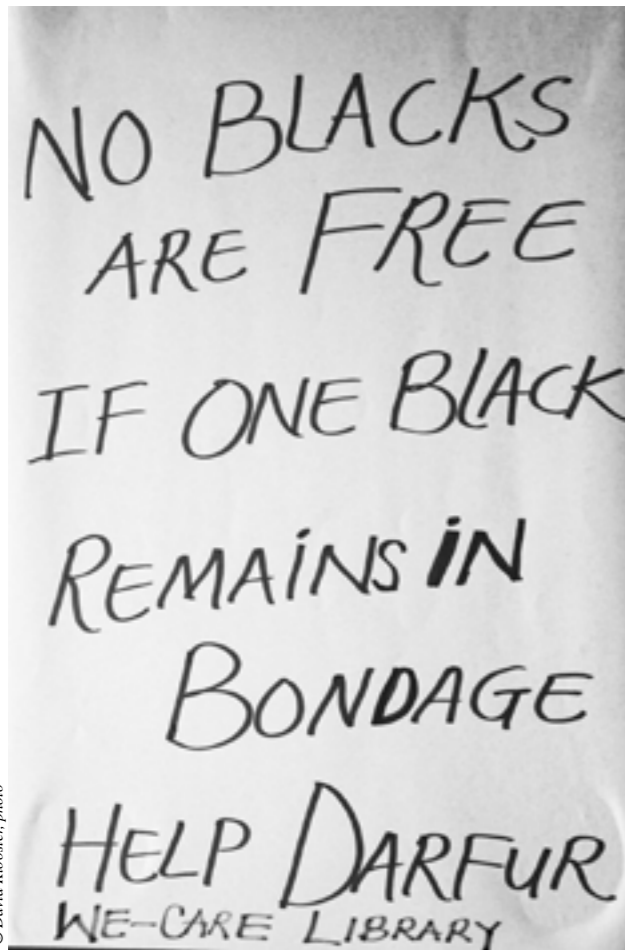 NO BLACKS
ARE FREE
IF ONE BLACK
REMAINS IN
BONDAGE
HELP DARFUR
WE-CARE LIBRARY